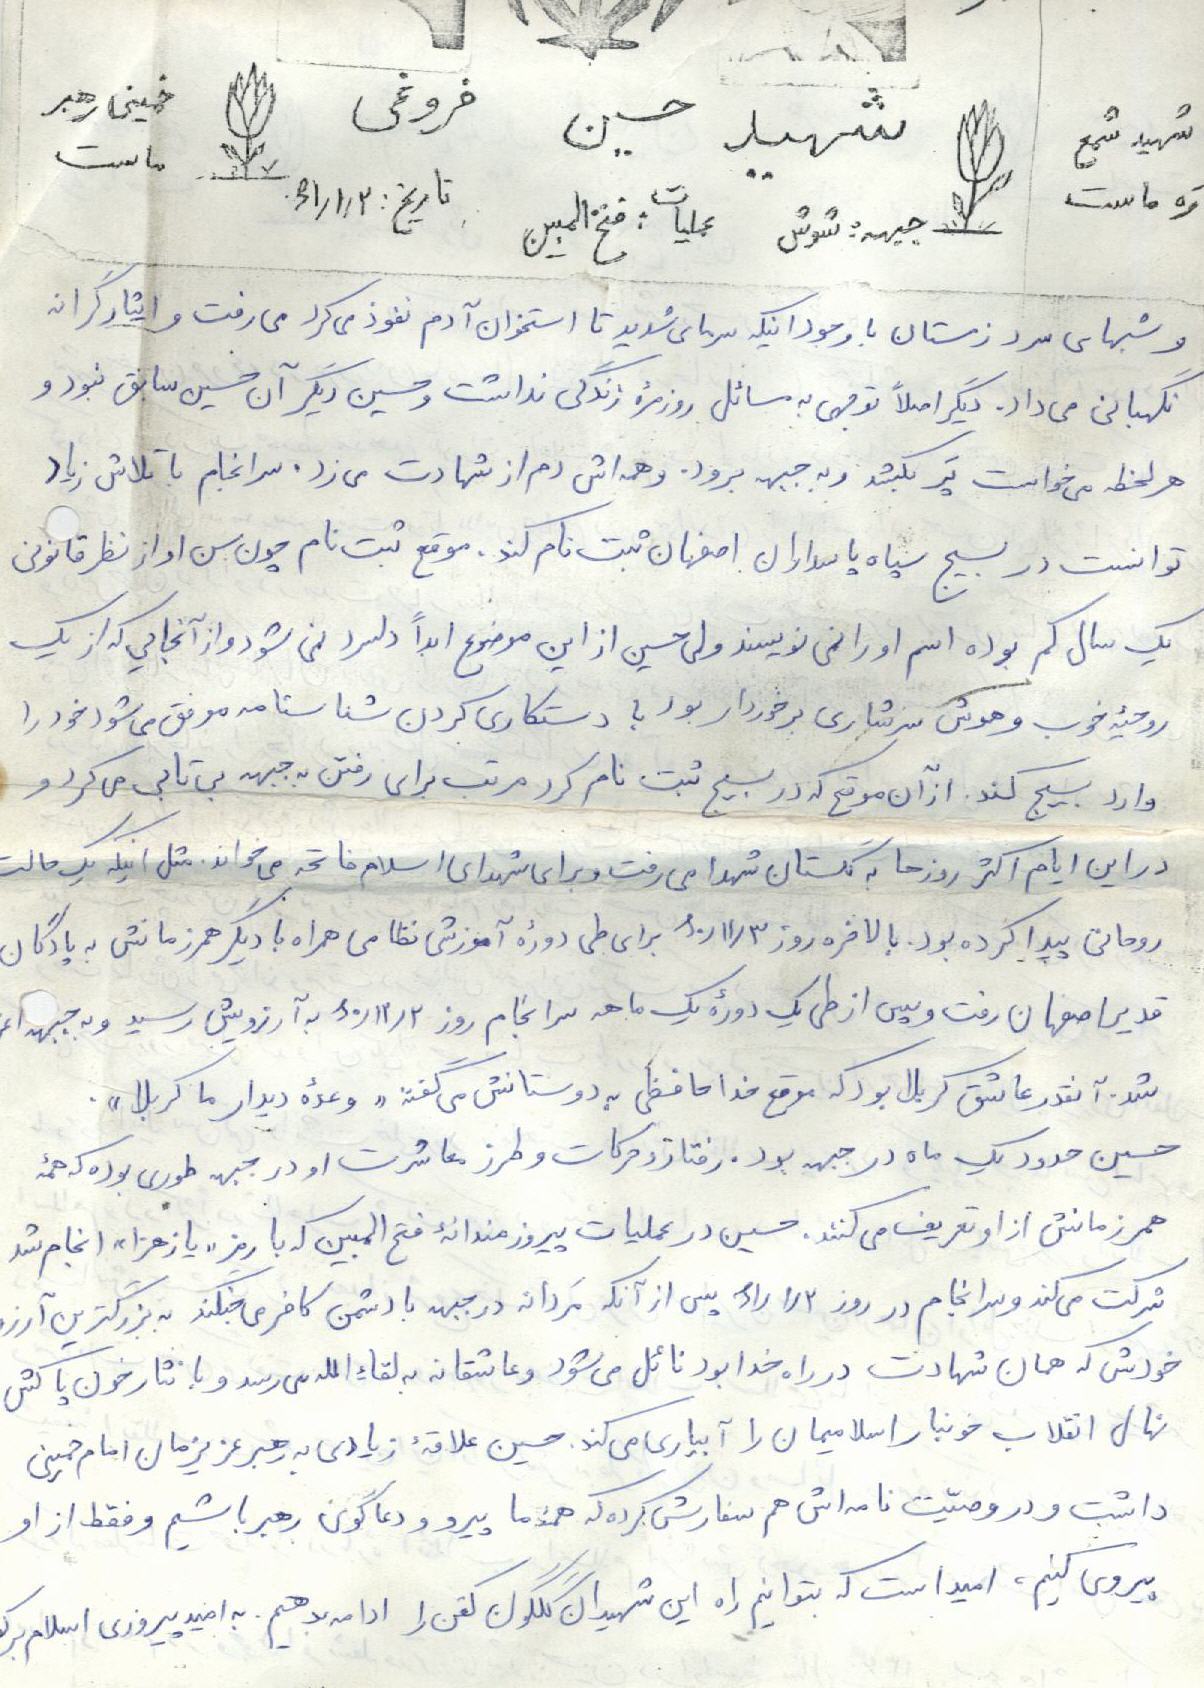 شهید شمع
ماست
شهید حسین فروغی
خمینی رهبر
ماست
جبهه: شوش عملیات: فتح المبین تاریخ: ۶۱/۱/۲
و شبهای سرد زمستان با وجود اینکه سرمای شدید تا استخوان آدم نفوذ می‌کرد می‌رفت و ایثارگرانه
نگهبانی می‌داد. دیگر اصلاً توجهی به مسائل روزمرهٔ زندگی نداشت و حسین دیگر آن حسین سابق نبود و
هر لحظه می‌خواست پر بکشد و به جبهه برود. و همه‌اش دم از شهادت می‌زد. سرانجام با تلاش زیاد
توانست در بسیج سپاه پاسداران اصفهان ثبت نام کند. موقع ثبت نام چون سن او از نظر قانونی
یک سال کم بوده اسم او را نمی‌نویسند ولی حسین از این موضوع ابداً دلسرد نمی‌شود و از آنجایی که از یک
روحیهٔ خوب و هوش سرشاری برخوردار بود با دستکاری کردن شناسنامه موفق می‌شود خود را
وارد بسیج کند. از آن موقع که در بسیج ثبت نام کرد مرتب برای رفتن به جبهه بی‌تابی می‌کرد و
در این ایام اکثر روزها به گلستان شهدا می‌رفت و برای شهدای اسلام فاتحه می‌خواند. مثل اینکه یک حالت
روحانی پیدا کرده بود. بالاخره روز ۶۰/۱۱/۳ برای طی دورهٔ آموزشی نظامی همراه با دیگر همرزمانش به پادگان
غدیر اصفهان رفت و پس از طی یک دورهٔ یک ماهه سرانجام روز ۶۰/۱۲/۲ به آرزویش رسید و به جبهه
شد. آنقدر عاشق کربلا بود که موقع خداحافظی به دوستانش می‌گفته «وعدهٔ دیدار ما کربلا».
حسین حدود یک ماه در جبهه بود. رفتار و حرکات و طرز معاشرت او در جبهه طوری بوده که همهٔ
همرزمانش از او تعریف می‌کنند. حسین در عملیات پیروزمندانهٔ فتح المبین که با رمز «یا زهرا» انجام شد
شرکت می‌کند و سرانجام در روز ۶۱/۱/۲ پس از آنکه مردانه در جبهه با دشمن کافر می‌جنگند به بزرگترین آرزوی
خودش که همان شهادت در راه خدا بود نائل می‌شود و عاشقانه به لقاء الله می‌رسد و با نثار خون پاکش
نهال انقلاب خونبار اسلامیمان را آبیاری می‌کند. حسین علاقهٔ زیادی به رهبر عزیزمان امام خمینی
داشت و در وصیّت نامه‌اش هم سفارش کرده که همهٔ ما پیرو و دعاگوی رهبر باشیم و فقط از او
پیروی کنیم، امید است که بتوانیم راه این شهیدان گلگون کفن را ادامه بدهیم. به امید پیروزی اسلام بر